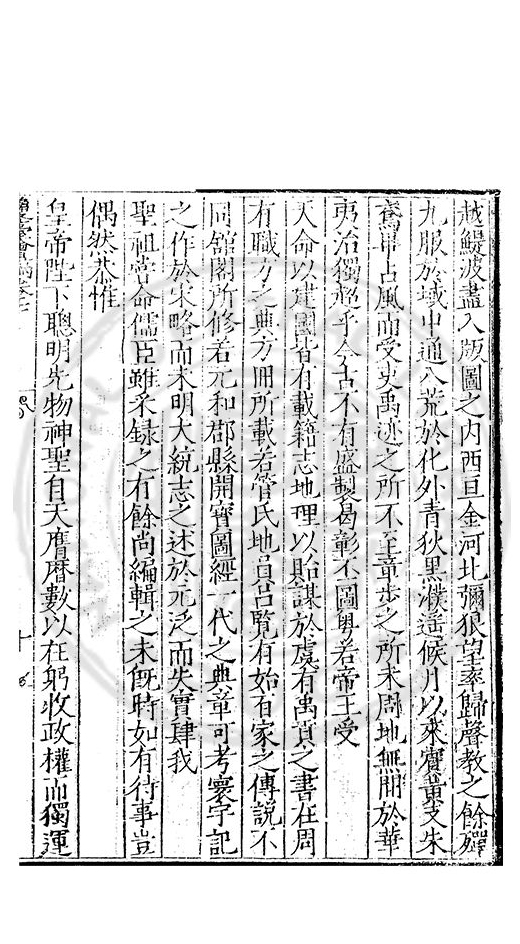 越鯷波盡入版圖之内西亘金河北彌狼望奉歸聲教之餘殫
九服於域中通八荒於化外青狄黑濮遥候月以來賓黄支朱
鳶畢占風而受吏禹迹之所不至章歩之所未周地無間於華
夷治獨超乎今古不有盛製曷彰丕圖粤若帝王受
天命以建國皆有載籍志地理以貽謀於虞有禹貢之書在周
有職方之典方冊所載若管氏地員吕覧有始有家之傳説不
同舘閣所修若元和郡縣開寳圖經一代之典章可考寰宇記
之作於宋略而未明大統志之述於元泛而失實肆我
聖祖嘗命儒臣雖采録之有餘尚編輯之未旣時如有待事豈
偶然恭惟
皇帝陛下聰明先物神聖自天膺曆數以在躬收政權而獨運